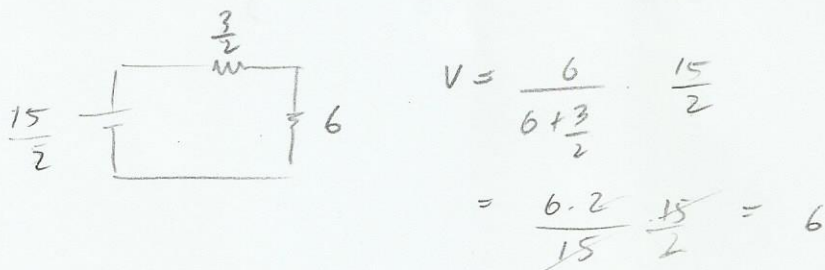 3/2
15/2
6
V = 6/(6+3/2) · 15/2
= 6·2/15 · 15/2 = 6